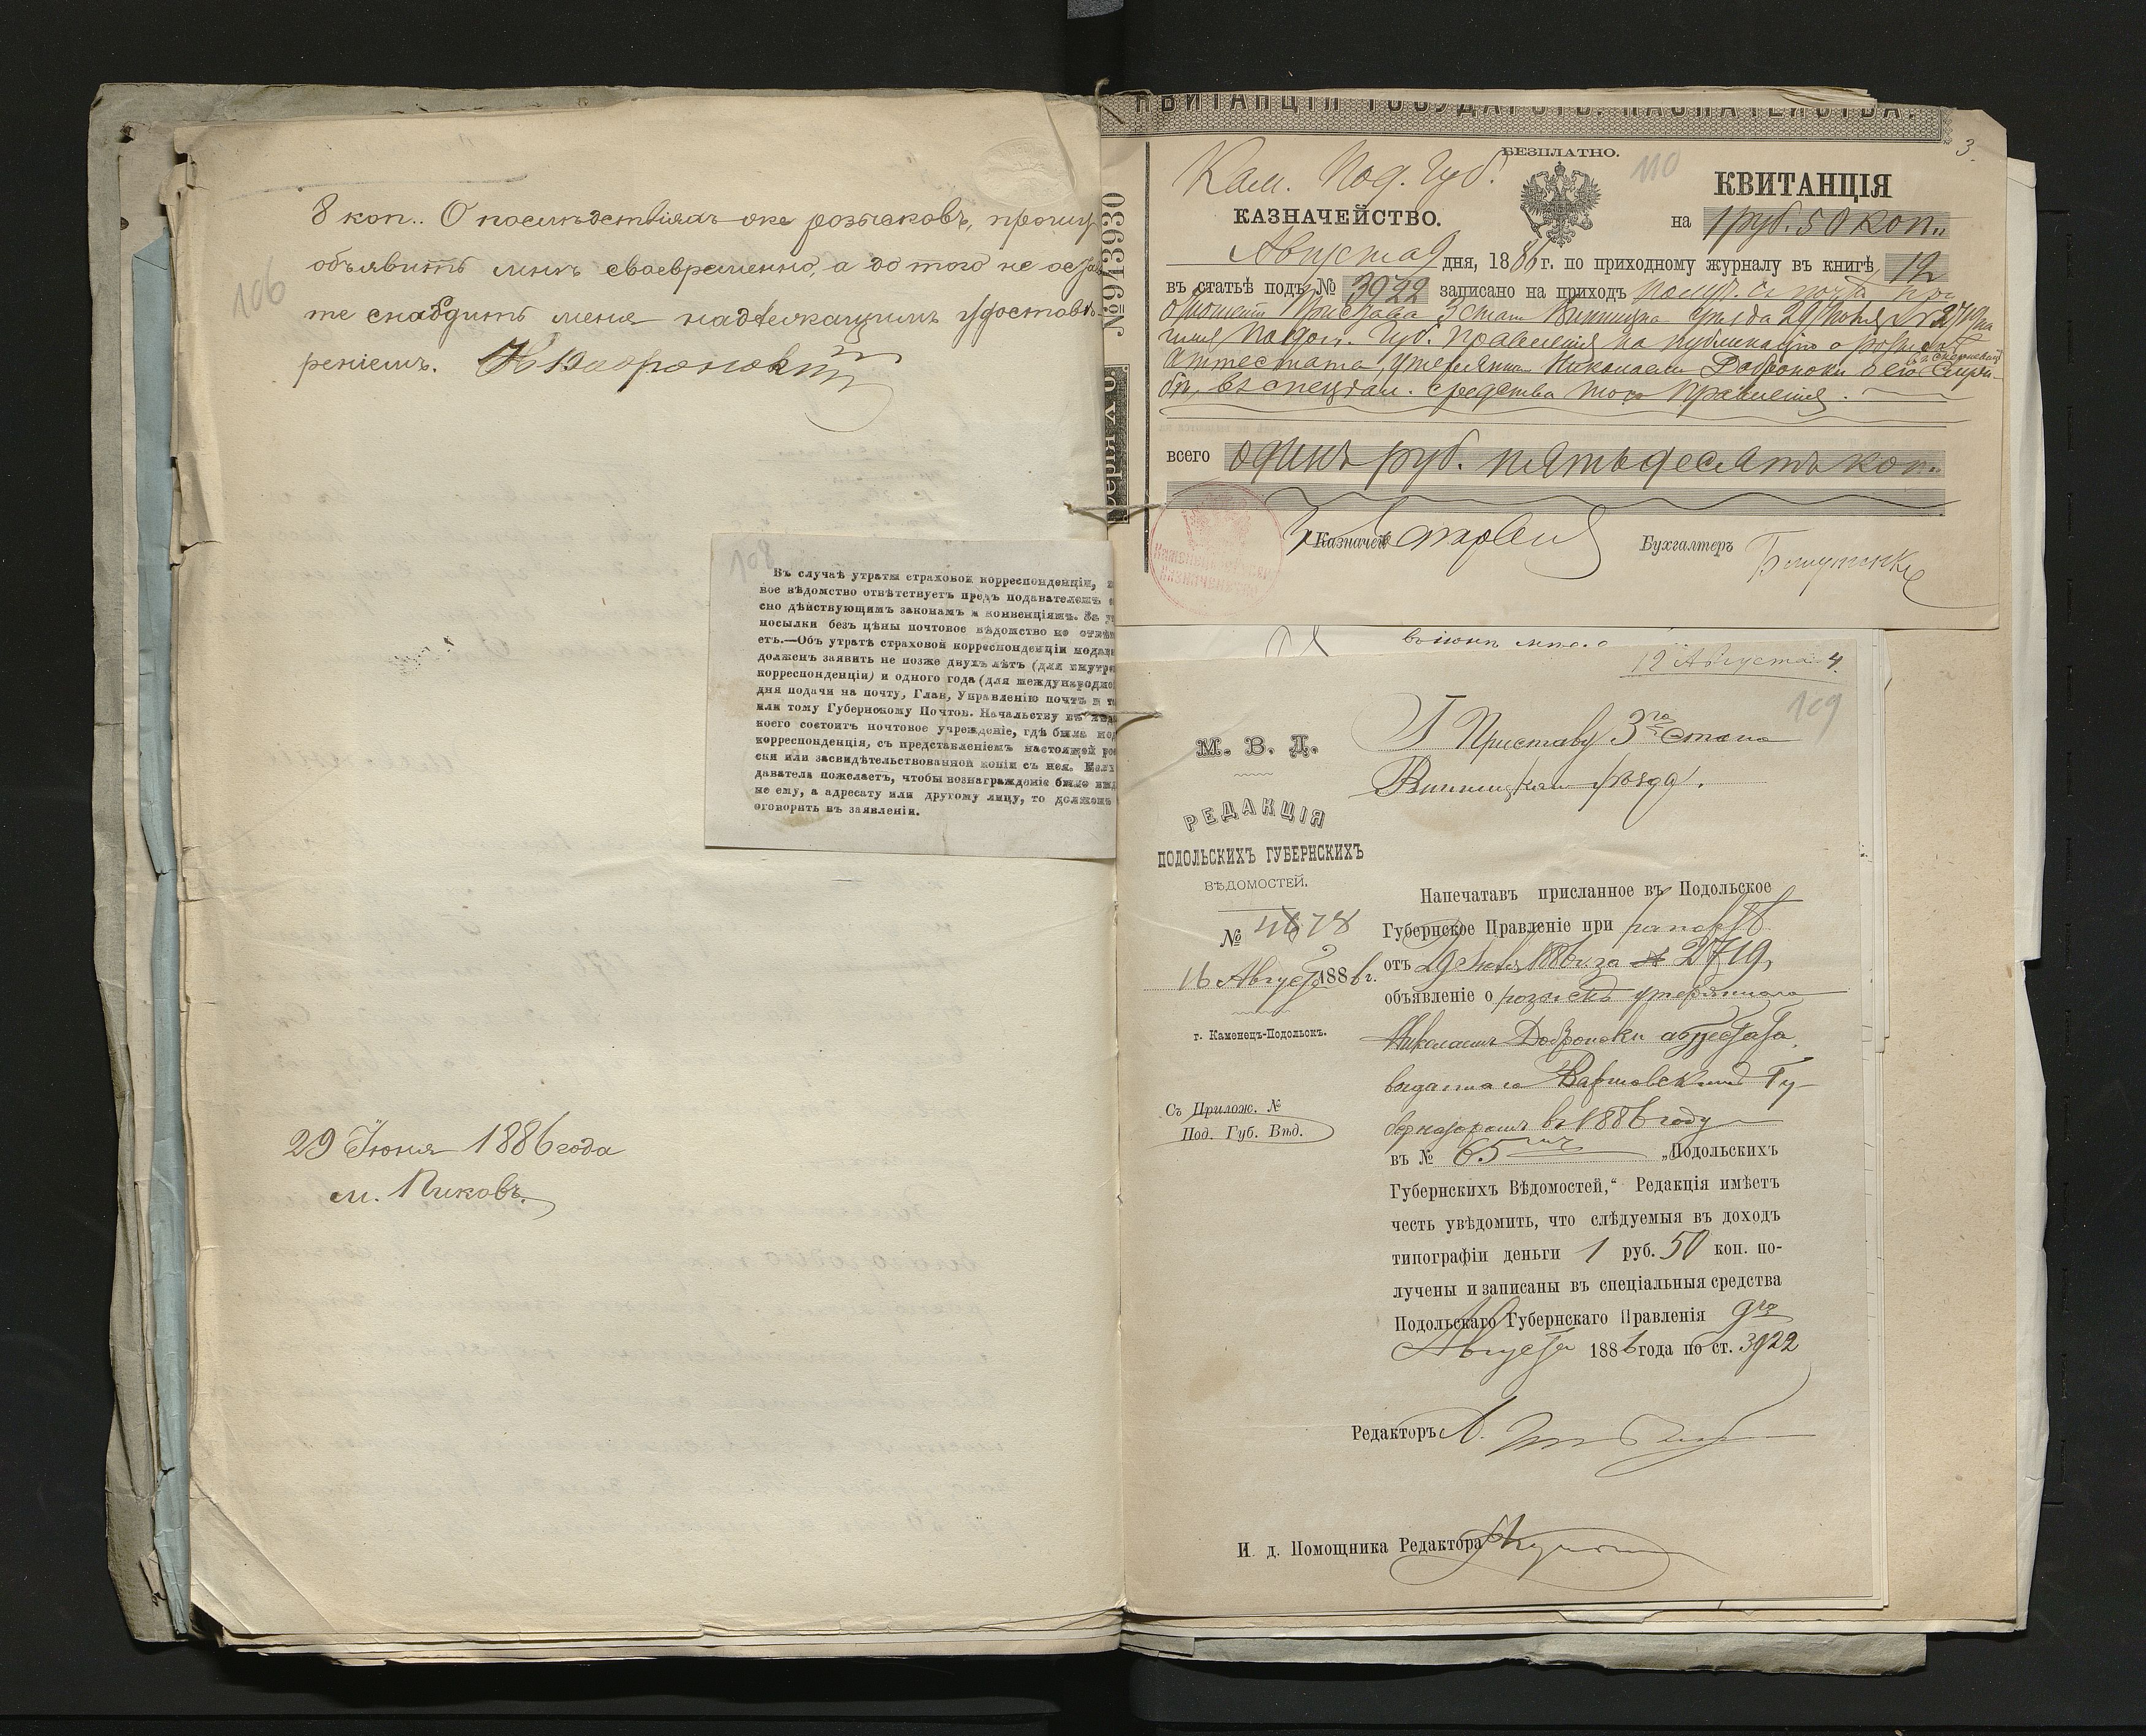 106
8 коп.. О последствіяхъ-же розысковъ, прошу
объявить мнѣ своевременно, а до того не остав
те снабдить меня надлежащимъ удостовѣ-
реніемъ.
29 Іюня 1886 года
м. Пиковъ.
108
Въ случаѣ утраты страховой корреспонденціи,
вое вѣдомство отвѣтствуетъ предъ подавателемъ
сно дѣйствующимъ законамъ и конвенціямъ. За
посылки безъ цѣны почтовое вѣдомство не отвѣ
етъ.—Объ утратѣ страховой корреспонденціи подав
долженъ заявить не позже двухъ лѣтъ (для внутре
корреспонденціи) и одного года (для международно
дня подачи на почту, Глав, Управленію почтъ и т
или тому Губернскому Почтов. Начальству въ
коего состоитъ почтовое учрежденіе, гдѣ была
корреспонденція, съ представленіемъ настоящей ро
ски или засвидѣтельствованной копіи съ нея. Если
даватель пожелаетъ, чтобы вознагражденіе было
не ему, а адресату или другому лицу, то долженъ
оговорить въ заявленіи.
КВИТАНЦІЯ ГОСУДАРСТВ. КАЗНАЧЕЙСТВА.
Серія Х б.
№913930
3.
БЕЗПЛАТНО.
110
Кам. Под. Губ.
КАЗНАЧЕЙСТВО.
КВИТАНЦІЯ
на 1 руб. 50 коп.
Августа 9 дня, 1886 г. по приходному журналу въ книгѣ 12
въ статьѣ подъ № 3922 записано на приходъ получ. съ почты при
отношеніи Пристава 3 стана Винницкаго уѣзда 29 Іюня № 2719 на
имя Подол. Губ. Правленія на публикацію о розыскѣ
аттестата, утерянна Николаемъ Добронокимъ
въ спеціал. средства того Правленія.
всего одинъ руб. пятьдесятъ коп.
Казначей
Бухгалтеръ
12 Августа 4.
109
М. В. Д.
РЕДАКЦІЯ
ПОДОЛЬСКИХЪ ГУБЕРНСКИХЪ
ВѢДОМОСТЕЙ.
№ 4678
16 Августа 1886 г.
г. Каменецъ-Подольскъ.
Съ Прилож. №
Под. Губ. Вѣд.
Г Приставу 3го Стана
Винницкаго уѣзда.
Напечатавъ присланное въ Подольское
Губернское Правленіе при рапортѣ
отъ 29 Іюня 1886 г. за № 2719,
объявленіе о розыскѣ утеряннаго
Николаемъ Доброноки аттестата,
выданнаго Варшавскимъ Гу-
бернаторомъ въ 1886 году
въ № 65мъ „Подольскихъ
Губернскихъ Вѣдомостей,“ Редакція имѣетъ
честь увѣдомить, что слѣдуемыя въ доходъ
типографіи деньги 1 руб. 50 коп. по-
лучены и записаны въ спеціальныя средства
Подольскаго Губернскаго Правленія 9го
Августа 1886 года по ст. 3922
Редакторъ
И. д. Помощника Редактора